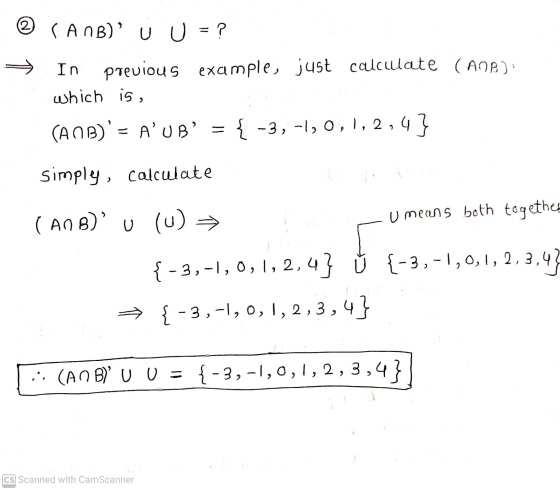 ② (A∩B)' ∪ U = ?
⇒ In previous example, just calculate (A∩B)'
which is,
(A∩B)' = A'∪B' = { -3, -1, 0, 1, 2, 4 }
simply, calculate
(A∩B)' ∪ (U) ⇒
U means both together
{ -3, -1, 0, 1, 2, 4 } ∪ { -3, -1, 0, 1, 2, 3, 4 }
⇒ { -3, -1, 0, 1, 2, 3, 4 }
∴ (A∩B)' ∪ U = { -3, -1, 0, 1, 2, 3, 4 }
CS Scanned with CamScanner